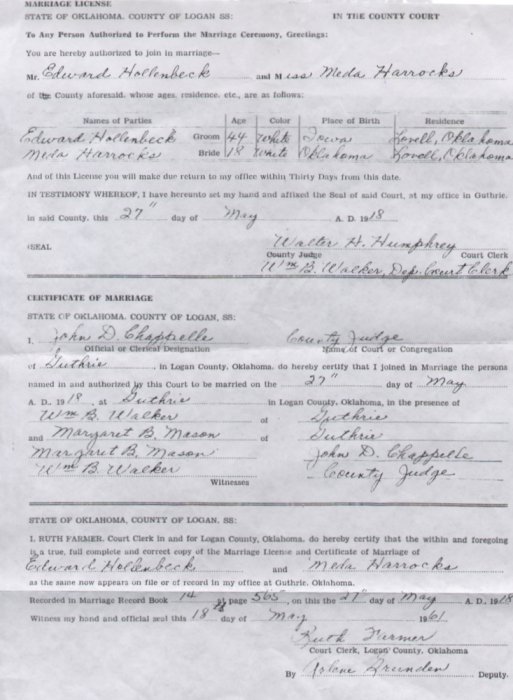 MARRIAGE LICENSE
STATE OF OKLAHOMA, COUNTY OF LOGAN SS: IN THE COUNTY COURT
To Any Person Authorized to Perform the Marriage Ceremony, Greetings:
You are hereby authorized to join in marriage—
Mr. Edward Hollenbeck and Miss Meda Harrocks
of the County aforesaid, whose ages, residence, etc., are as follows:
Names of Parties Age Color Place of Birth Residence
Edward Hollenbeck Groom 44 White Iowa Lovell, Oklahoma
Meda Harrocks Bride 18 White Oklahoma Lovell, Oklahoma
And of this License you will make due return to my office within Thirty Days from this date.
IN TESTIMONY WHEREOF, I have hereunto set my hand and affixed the Seal of said Court, at my office in Guthrie,
in said County, this 27" day of May A. D. 1918
(SEAL Walter H. Humphrey
County Judge Court Clerk
Wm B. Walker, Dep. Court Clerk
CERTIFICATE OF MARRIAGE
STATE OF OKLAHOMA, COUNTY OF LOGAN, SS:
I, John D. Chappelle County Judge
Official or Clerical Designation Name of Court or Congregation
of Guthrie, in Logan County, Oklahoma, do hereby certify that I joined in Marriage the persons
named in and authorized by this Court to be married on the 27" day of May
A. D., 1918, at Guthrie in Logan County, Oklahoma, in the presence of
Wm B. Walker of Guthrie
and Margaret B. Mason of Guthrie
Margaret B. Mason John D. Chappelle
Wm B. Walker County Judge
Witnesses
STATE OF OKLAHOMA, COUNTY OF LOGAN, SS:
I, RUTH FARMER, Court Clerk in and for Logan County, Oklahoma, do hereby certify that the within and foregoing
is a true, full complete and correct copy of the Marriage License and Certificate of Marriage of
Edward Hollenbeck and Meda Harrocks
as the same now appears on file or of record in my office at Guthrie, Oklahoma.
Recorded in Marriage Record Book 14 at page 565, on this the 27" day of May A. D., 1918
Witness my hand and official seal this 18 day of May 1961
Ruth Farmer
Court Clerk, Logan County, Oklahoma
By Deputy.